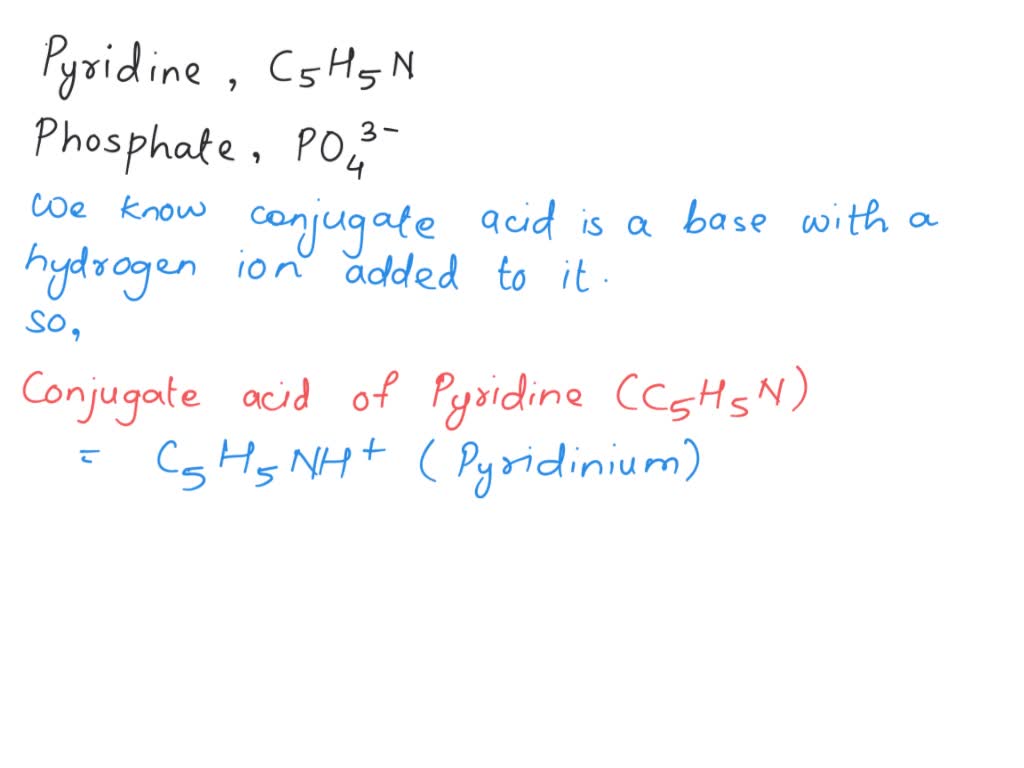 Pyridine, C₅H₅N
Phosphate, PO₄³⁻
We know conjugate acid is a base with a
hydrogen ion added to it.
so,
Conjugate acid of Pyridine (C₅H₅N)
= C₅H₅NH⁺ (Pyridinium)